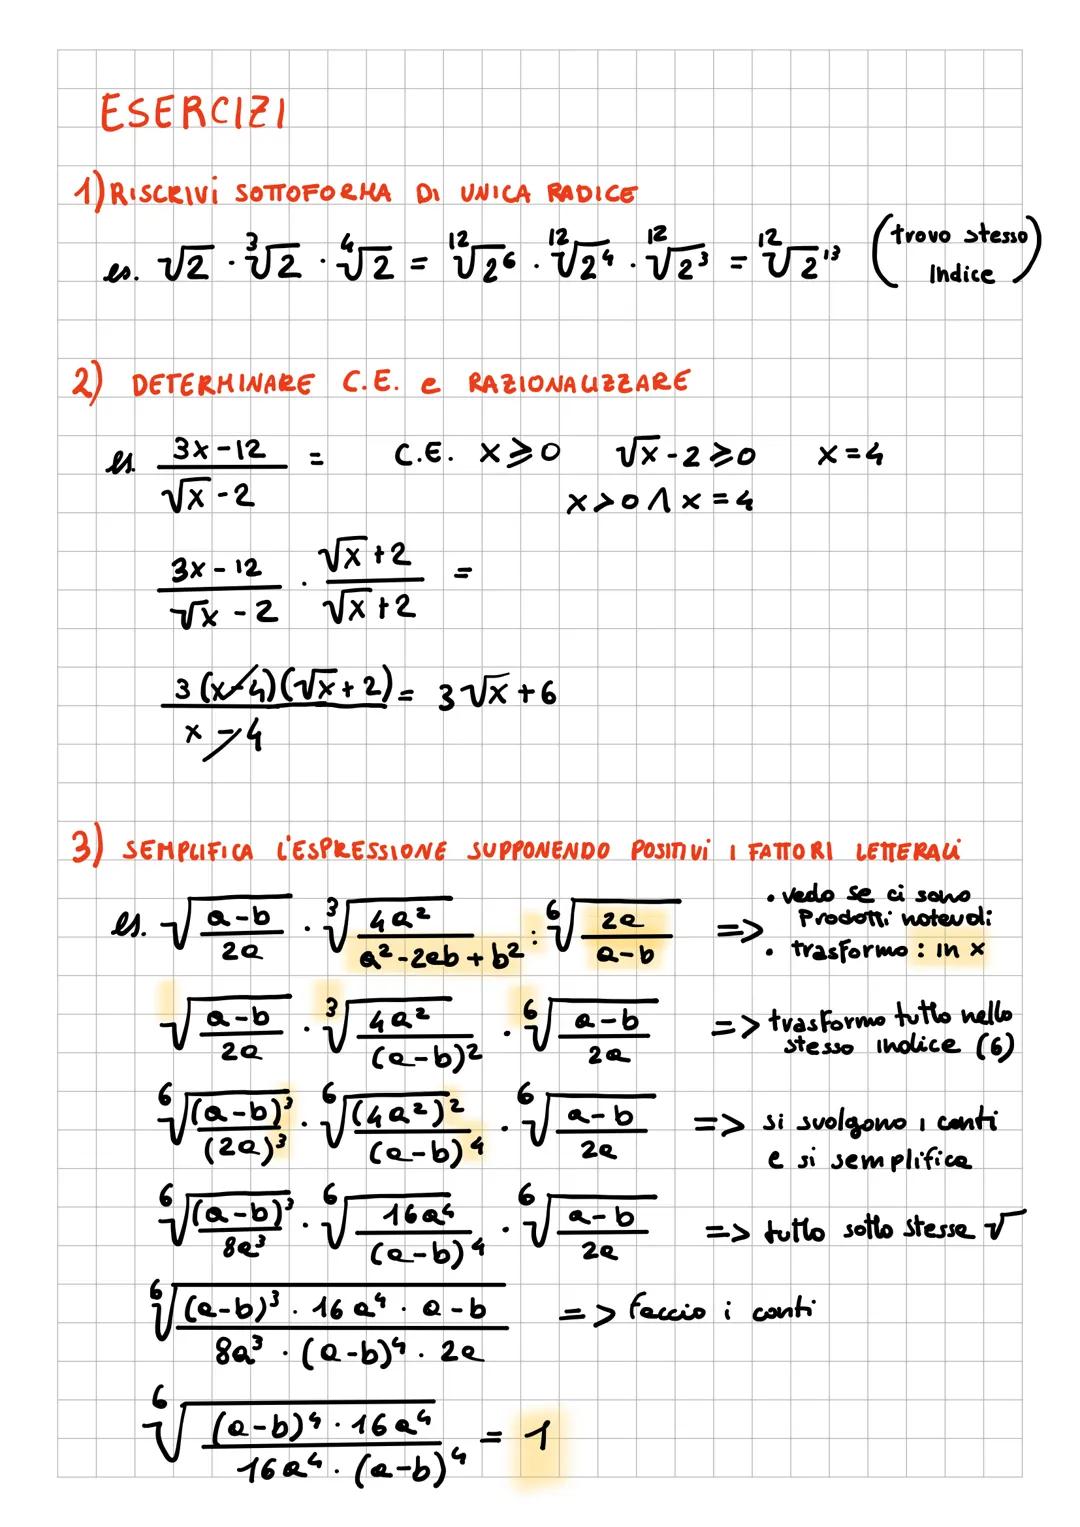 ESERCIZI
1) RISCRIVI SOTTOFORMA DI UNICA RADICE
es. √2 · ∛2 · ∜2 = ¹²√2⁶ · ¹²√2⁴ · ¹²√2³ = ¹²√2¹³ (trovo stesso indice)
2) DETERMINARE C.E. e RAZIONALIZZARE
es. (3x-12)/(√x-2) = C.E. x⩾0 √x-2⩾0 x=4
x>0 ∧ x=4
(3x-12)/(√x-2) · (√x+2)/(√x+2) =
3(x-4)(√x+2)/(x-4) = 3√x+6
3) SEMPLIFICA L'ESPRESSIONE SUPPONENDO POSITIVI I FATTORI LETTERALI
es. √((a-b)/(2a)) · ∛(4a²/(a²-2ab+b²)) : ⁶√(2a/(a-b)) => • vedo se ci sono Prodotti notevoli
• trasformo : in x
√((a-b)/(2a)) · ∛(4a²/(a-b)²) · ⁶√((a-b)/(2a)) => trasformo tutto nello stesso indice (6)
⁶√((a-b)³/(2a)³) · ⁶√((4a²)²/(a-b)⁴) · ⁶√((a-b)/(2a)) => si svolgono i conti e si semplifica
⁶√((a-b)³/(8a³)) · ⁶√(16a⁴/(a-b)⁴) · ⁶√((a-b)/(2a)) => tutto sotto stessa √
⁶√(((a-b)³ · 16a⁴ · a-b)/(8a³ · (a-b)⁴ · 2a)) => faccio i conti
⁶√(((a-b)⁴ · 16a⁴)/(16a⁴ · (a-b)⁴)) = 1